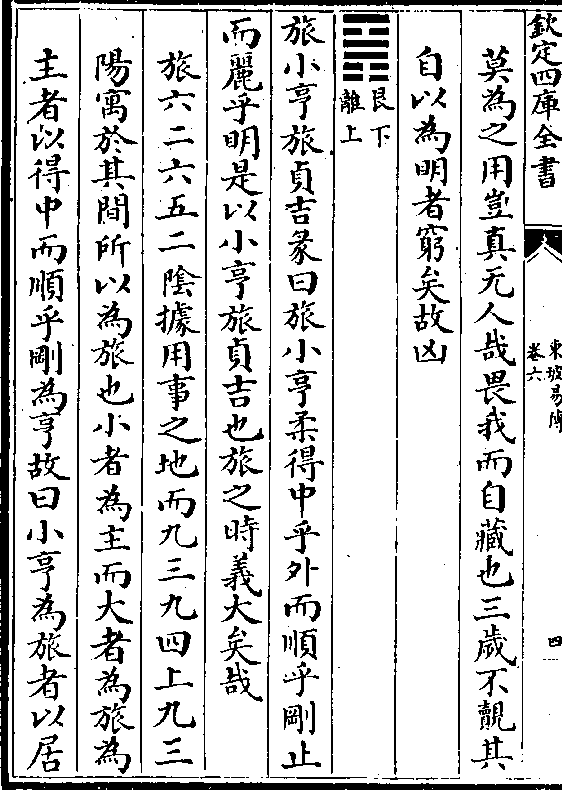 欽定四庫全書
東坡易傳
卷六
四
莫為之用豈真无人哉畏我而自藏也三歲不覿其
自以為明者窮矣故凶
艮下
離上
旅小亨旅貞吉彖曰旅小亨柔得中乎外而順乎剛止
而麗乎明是以小亨旅貞吉也旅之時義大矣哉
旅六二六五二陰據用事之地而九三九四上九三
陽寓於其間所以為旅也小者為主而大者為旅為
主者以得中而順乎剛為亨故曰小亨為旅者以居